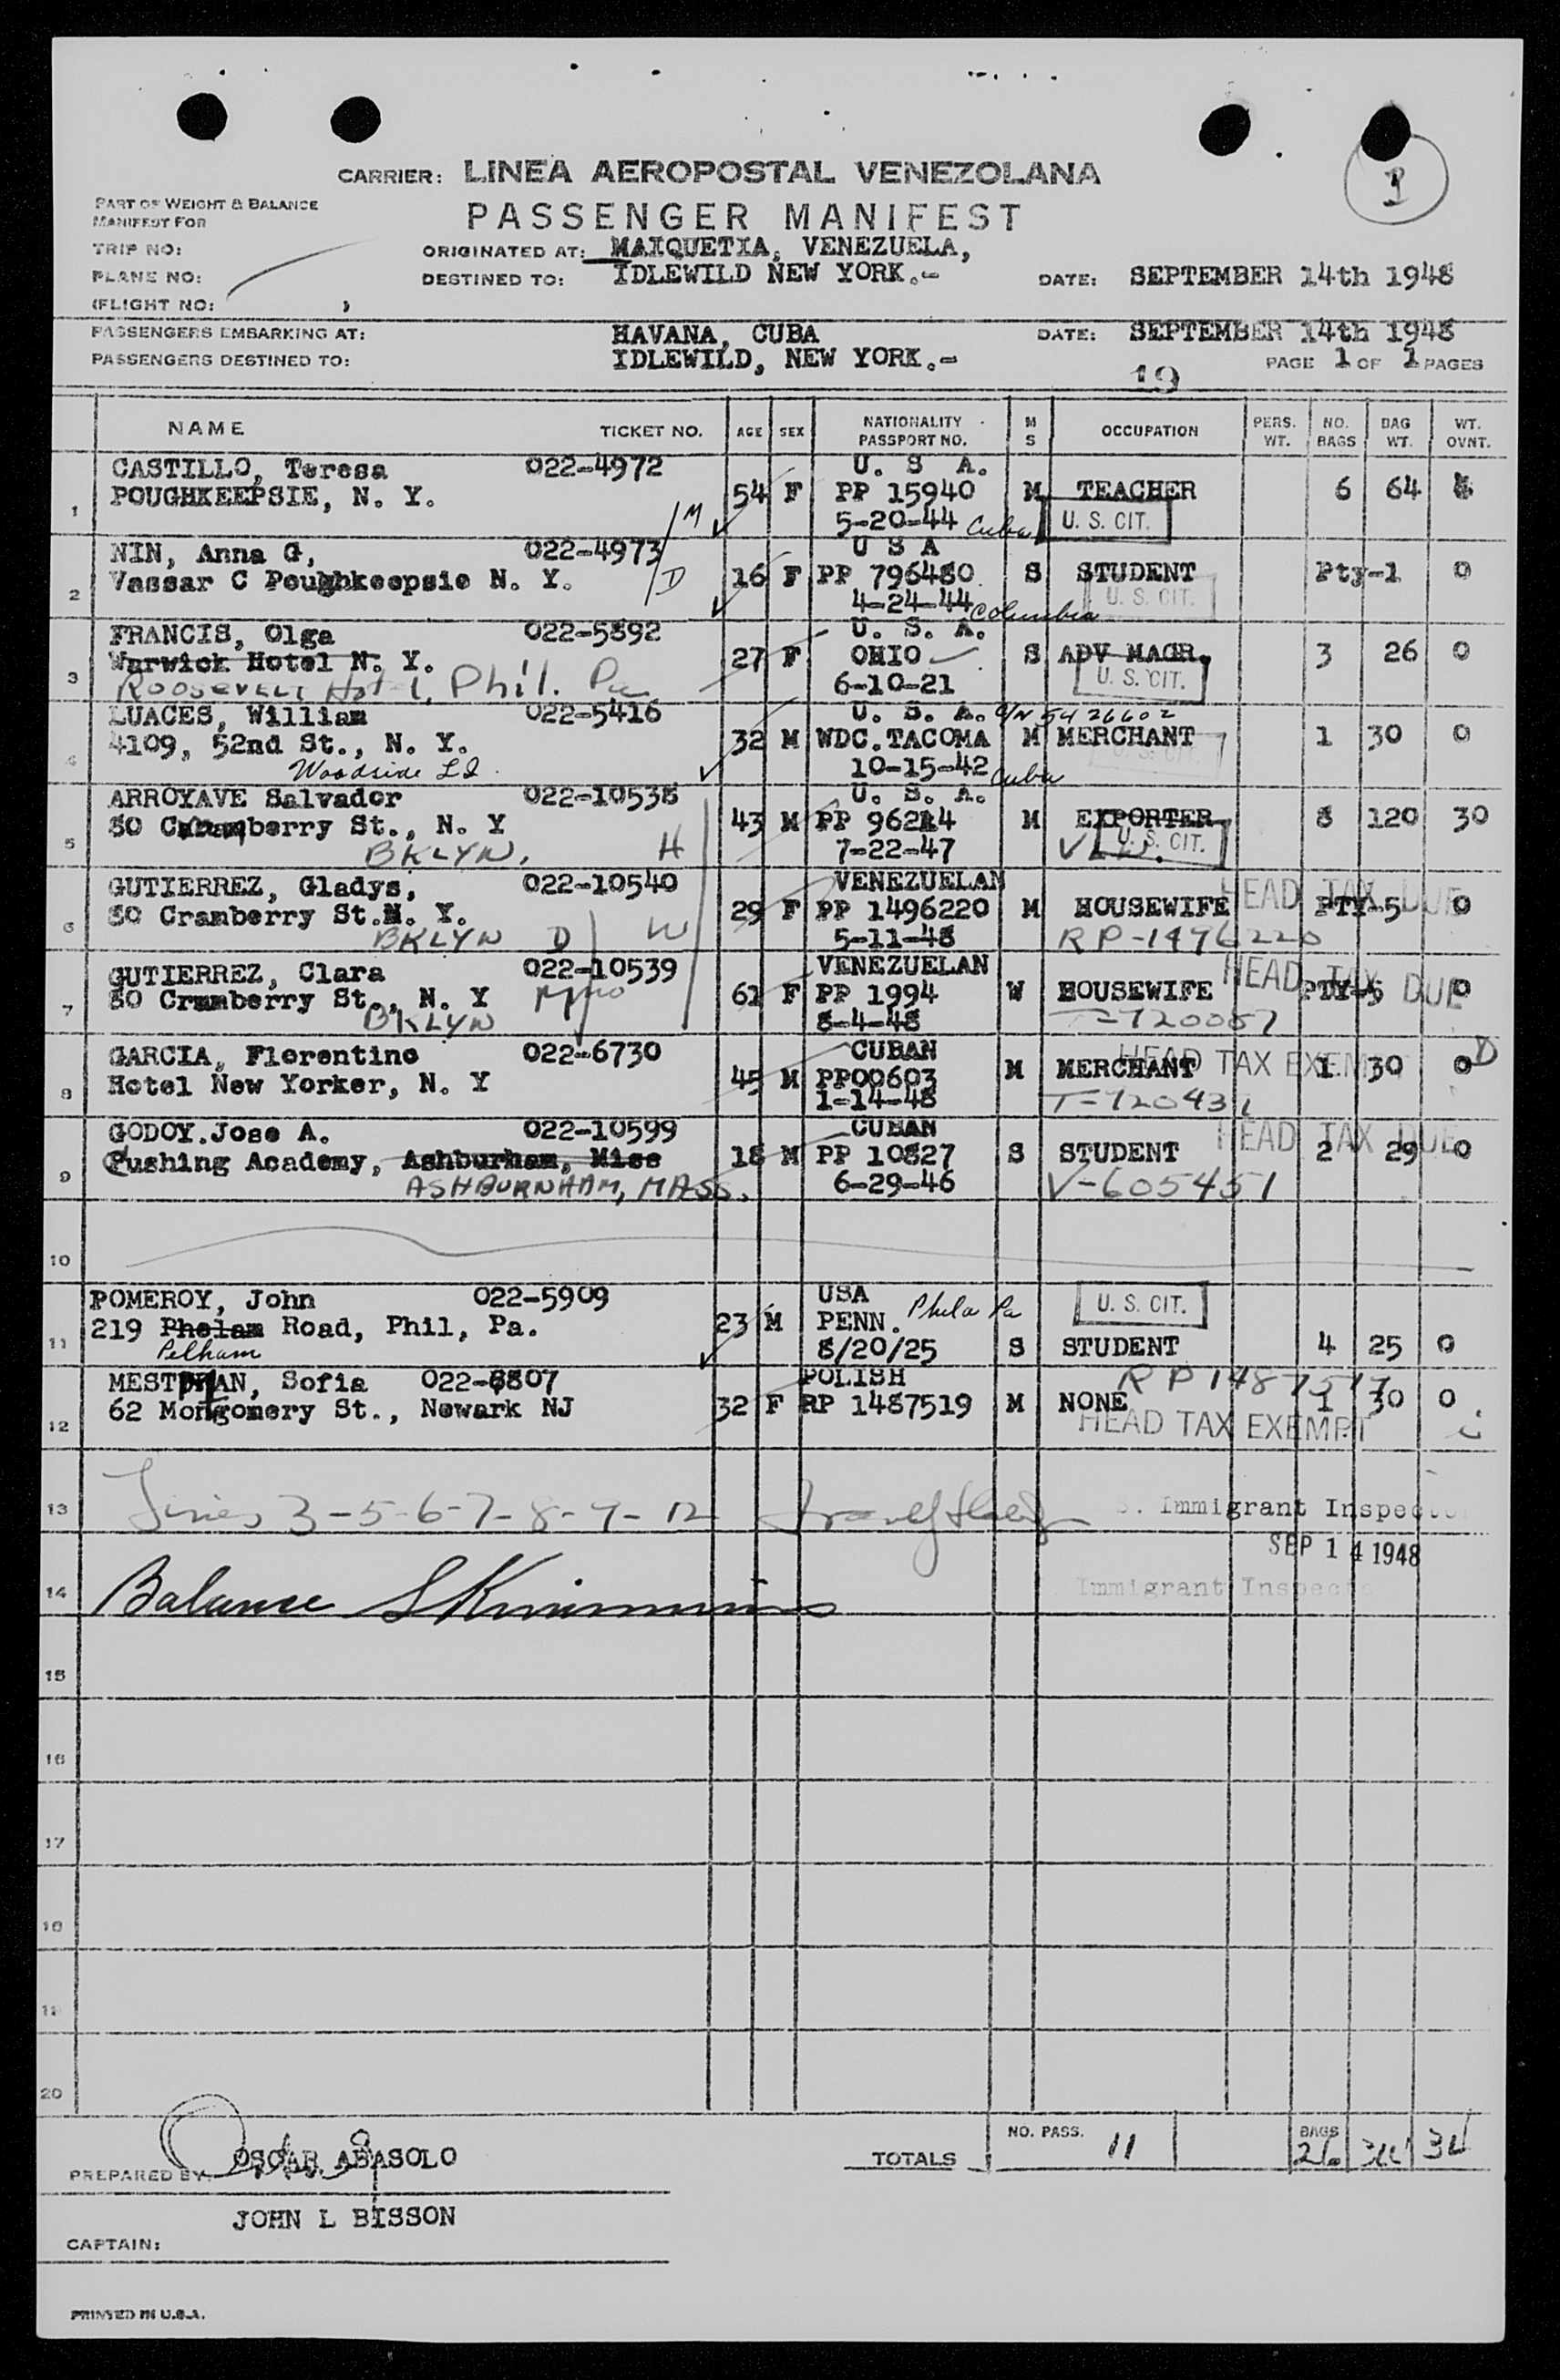 CARRIER: LINEA AEROPOSTAL VENEZOLANA
PART OF WEIGHT & BALANCE
MANIFEST FOR
PASSENGER MANIFEST
TRIP NO:
ORIGINATED AT: MAIQUETIA, VENEZUELA,
PLANE NO:
DESTINED TO: IDLEWILD NEW YORK.-
DATE: SEPTEMBER 14th 1948
(FLIGHT NO: )
PASSENGERS EMBARKING AT: HAVANA, CUBA
DATE: SEPTEMBER 14th 1948
PASSENGERS DESTINED TO: IDLEWILD, NEW YORK.-
PAGE 1 OF 1 PAGES
19
NAME TICKET NO. AGE SEX NATIONALITY PASSPORT NO. M S OCCUPATION PERS. WT. NO. BAGS BAG WT. WT. OVNT.
CASTILLO, Teresa 022-4972 U. S A.
1 POUGHKEEPSIE, N. Y. 54 F PP 15940 M TEACHER 6 64
M 5-20-44 Cuba U. S. CIT.
NIN, Anna G, 022-4973 U S A
2 Vassar C Poughkeepsie N. Y. D 16 F PP 796480 S STUDENT Pty-1 0
4-24-44 Columbia U. S. CIT.
FRANCIS, Olga 022-5892 U. S. A.
3 Warwick Hotel N. Y. 27 F OHIO S ADV MAGR. 3 26 0
Roosevelt Hotel, Phil. Pa 6-10-21 U. S. CIT.
LUACES, William 022-5416 U. S. A. C/N 5426602
4 4109, 52nd St., N. Y. 32 M WDC.TACOMA M MERCHANT 1 30 0
Woodside L I. 10-15-42 Cuba U. S. CIT.
ARROYAVE Salvador 022-10538 U. S. A.
5 80 Cranberry St., N. Y 43 M PP 96214 M EXPORTER 8 120 30
BKLYN. H 7-22-47 U. S. CIT.
GUTIERREZ, Gladys, 022-10540 VENEZUELAN HEAD TAX DUE
6 80 Cramberry St.N. Y. 29 F PP 1496220 M HOUSEWIFE PTY-5 0
BKLYN D W 5-11-48 RP-1496220
GUTIERREZ, Clara 022-10539 VENEZUELAN HEAD TAX DUE
7 80 Cramberry St., N. Y 61 F PP 1994 W HOUSEWIFE PTY-5 0
BKLYN 8-4-48 T-720057
GARCIA, Florentino 022-6730 CUBAN HEAD TAX EXEMPT D
8 Hotel New Yorker, N. Y 45 M PP00603 M MERCHANT 1 30 0
1-14-48 T-720431
GODOY.Jose A. 022-10599 CUBAN HEAD TAX DUE
9 Cushing Academy, Ashburham, Miss 18 M PP 10827 S STUDENT 2 29 0
ASHBURNHAM, MASS. 6-29-46 V-605451
10
POMEROY, John 022-5909 USA U. S. CIT.
11 219 Phelam Road, Phil, Pa. 23 M PENN. Phila Pa
Pelham 8/20/25 S STUDENT 4 25 0
MESTMAN, Sofia 022-6807 POLISH RP 1487517
12 62 Montgomery St., Newark NJ 32 F RP 1487519 M NONE 1 30 0
HEAD TAX EXEMPT
13 Lines 3-5-6-7-8-9-12 Immigrant Inspector
SEP 14 1948
14 Balance Immigrant Inspector
15
16
17
18
19
20
TOTALS NO. PASS. 11 BAGS 26 34
PREPARED BY: OSCAR ABASOLO
CAPTAIN: JOHN L BISSON
PRINTED IN U.S.A.